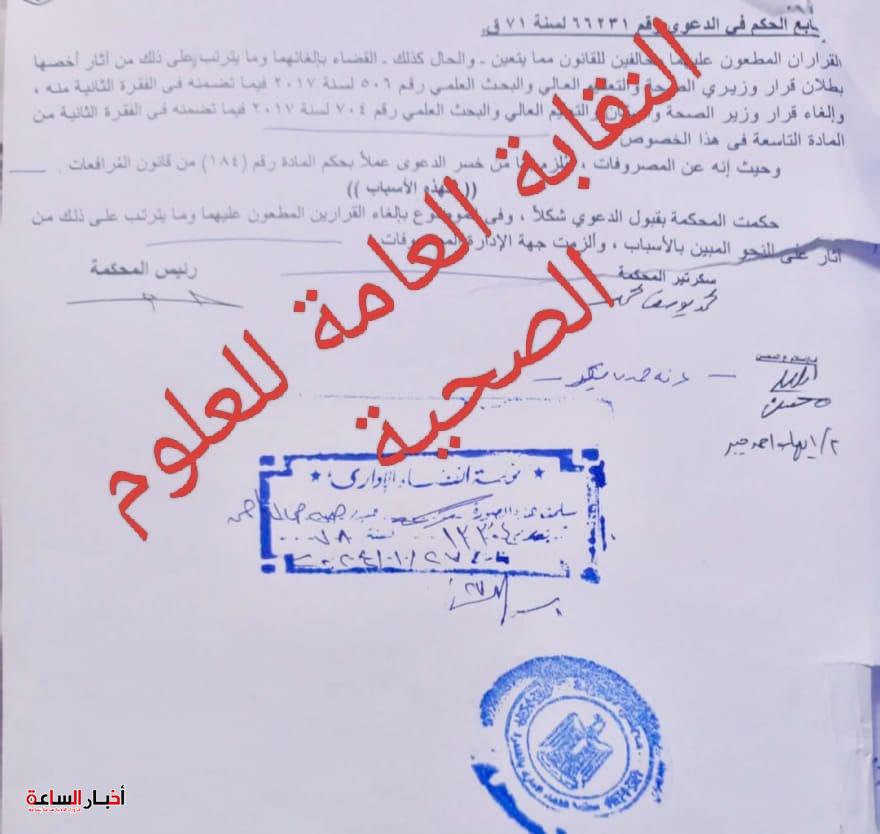 تابع الحكم في الدعوى رقم ٦٦٢٣١ لسنة ٧١ ق.
القراران المطعون عليهما مخالفين للقانون مما يتعين - والحال كذلك - القضاء بإلغائهما وما يترتب على ذلك من آثار أخصها
بطلان قرار وزيري الصحة والتعليم العالي والبحث العلمي رقم ٥٠٦ لسنة ٢٠١٧ فيما تضمنه فى الفقرة الثانية منه ،
وإلغاء قرار وزير الصحة والسكان والتعليم العالي والبحث العلمي رقم ٧٠٤ لسنة ٢٠١٧ فيما تضمنه فى الفقرة الثانية من
المادة التاسعة فى هذا الخصوص
وحيث إنه عن المصروفات ، يلزم بها من خسر الدعوى عملاً بحكم المادة رقم (١٨٤) من قانون المرافعات .
(( لهذه الأسباب ))
حكمت المحكمة بقبول الدعوي شكلاً ، وفي الموضوع بإلغاء القرارين المطعون عليهما وما يترتب على ذلك من
آثار على النحو المبين بالأسباب ، وألزمت جهة الإدارة المصروفات
سكرتير المحكمة
رئيس المحكمة
النقابة العامة للعلوم
الصحية
٢/ إيهاب احمد
القضاء الإدارى
الصورة
لسنة ٧٨
أخبار الساعة